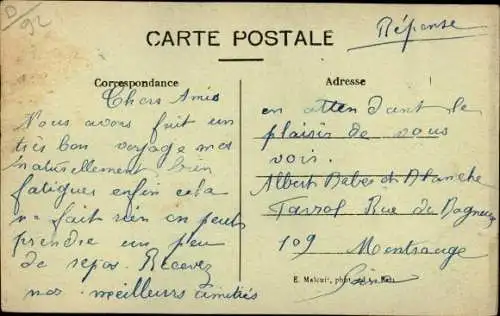 D
92
Réponse
CARTE POSTALE
Correspondance
Adresse
Chers Amis
Nous avons fait un
très bon voyage mes
naturellement bien
fatigues enfin cela
ne fait rien on peut
prendre un peu
de repos. Recevez
nos meilleurs amitiés
en attendant le
plaisir de vous
voir.
Albert Babes et Blanche
Rue de Bagneux
109 Montrouge
Seine
E. phot.